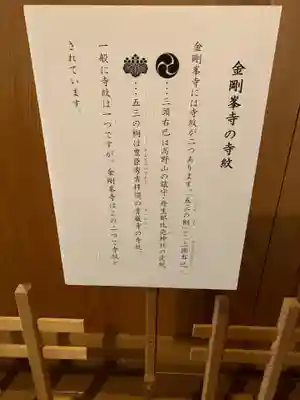 金剛峯寺の寺紋
金剛峯寺には寺紋が二つあります。「五三の桐」と「三頭右巴」
…三頭右巴は高野山の鎮守・丹生都比売神社の定紋
…五三の桐は豊臣秀吉拝領の青巌寺の寺紋
一般に寺紋は一つですが、金剛峯寺はこの二つを寺紋と
されています。